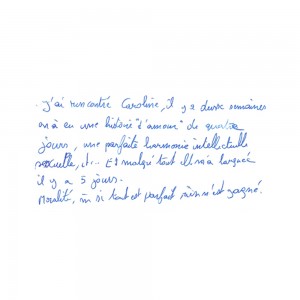 . j'ai rencontré Caroline, il y a deux semaines
on a eu une histoire "d'amour" de quatre
jours, une parfaite harmonie intellectuelle
sexuelle, et... Et malgré tout elle m'a largué
il y a 5 jours.
Moralité, même si tout est parfait rien n'est gagné.